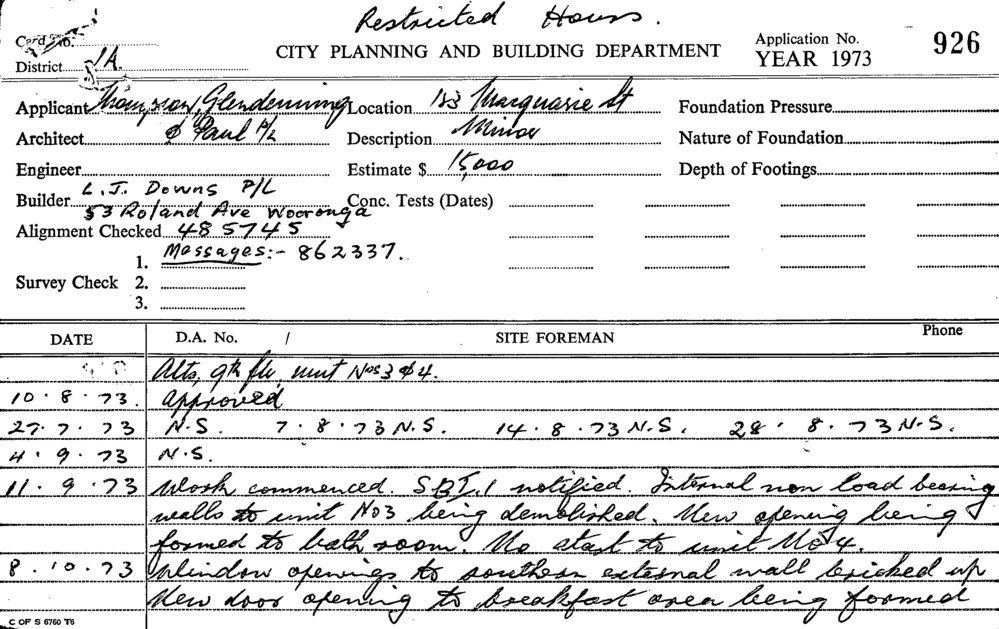 Restricted Hours.
Card No.
CITY PLANNING AND BUILDING DEPARTMENT
Application No.
YEAR 1973
926
District 1A
Applicant Thompson, Glendenning Location 183 Macquarie St Foundation Pressure
Architect & Paul P/L Description Minor Nature of Foundation
Engineer Estimate $ 15,000 Depth of Footings
Builder L.J. Downs P/L Conc. Tests (Dates)
53 Roland Ave Wooronga
Alignment Checked 485745
1. Messages:- 862337.
Survey Check 2.
3.
DATE D.A. No. / SITE FOREMAN Phone
Alts, 9th flr, unit Nos 3 & 4.
10.8.73. Approved
27.7.73 N.S. 7.8.73 N.S. 14.8.73 N.S. 28.8.73 N.S.
4.9.73 N.S.
11.9.73 Work commenced. SBI.1 notified. Internal non load bearing
walls to unit No3 being demolished. New opening being
formed to bath room. No start to unit No 4.
8.10.73 Window openings to southern external wall bricked up
New door opening to breakfast area being formed
C OF S 6760 T6